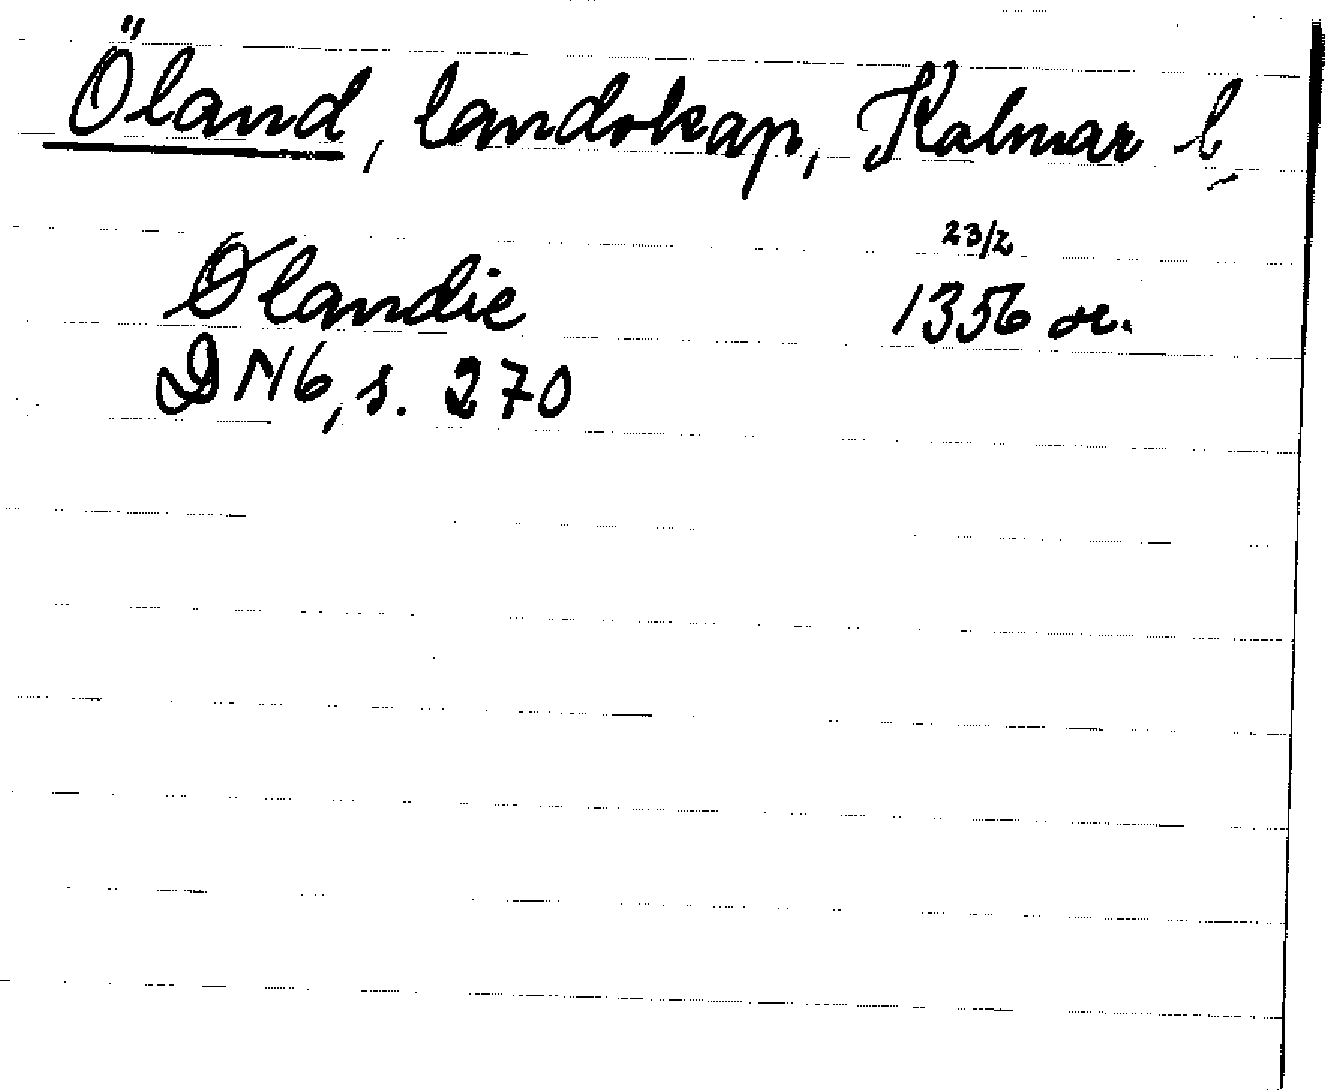 Öland, landskap, Kalmar l.
Ølandie 23/2 1356 or.
DN6, s. 270